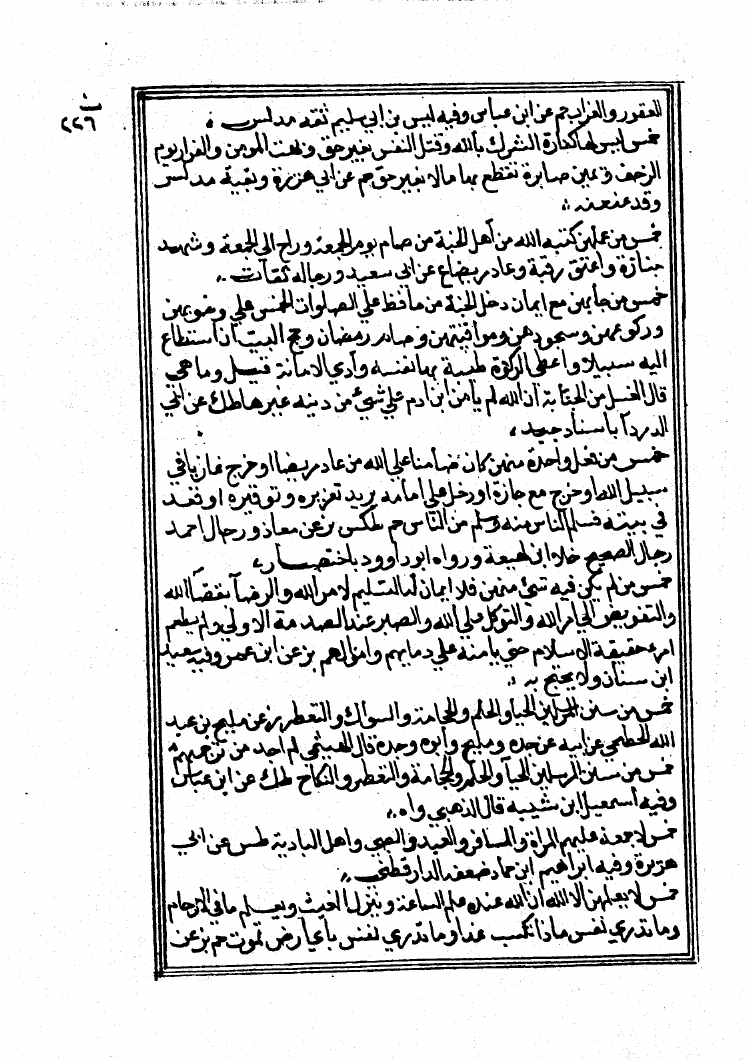 ب
٢٢٦
العقور والغراب حم عن ابن عباس وفيه ليس بن ابي سليم ثقه مدلس
خمس ليس لها كفارة الشرك بالله وقتل النفس بغير حق وبهت المومن والفرار يوم
الزحف ويمين صابرة تقتطع بها مالا بغير حق حم عن ابي هريرة وبقية مدلس
وقد عنعنه
خمس من عملهن كتبه الله من أهل الجنة من صام يوم الجمعة وراح الى الجمعة وشهد
جنازة واعتق رقبة وعاد مريضا ع عن ابى سعيد ورجاله ثقات
خمس من جا بهن مع ايمان دخل الجنة من حافظ علي الصلوات الخمس علي وضوءهن
وركوعهن وسجودهن ومواقيتهن وصام رمضان وحج البيت ان استطاع
اليه سبيلا واعطى الزكوة طيبة بها نفسه وأدي الامانة قيل وما هي
قال الغسل من الجنابة ان الله لم يامن ابن ادم علي شيئ من دينه غيرها طك عن ابي
الدردآ باسناد جيد
خمس من فعل واحدة منهن كان ضامنا علي الله من عاد مريضا او خرج غازيا في
سبيل الله او خرج مع جنازة او دخل علي امامه يريد تعزيره وتوقيره او قعد
في بيته فسلم الناس منه وسلم من الناس حم طكس بز عن معاذ ورجال احمد
رجال الصحيح خلا ابن لهيعة ورواه ابو داوود باختصار
خمس من لم يكن فيه شئ منهن فلا ايمان له التسليم لامر الله والرضآ بقضآ الله
والتفويض الي امر الله والتوكل علي الله والصبر عند الصدمة الاولي ولم يطعم
امرء حقيقة الاسلام حتي يامنه علي دمايهم واموالهم بز عن ابن عمر وفيه سعيد
ابن سنان ولا يحتج به
خمس من سنن المرسلين الحيا والحلم والحجامة والسواك والتعطر بز عن مليح بن عبد
الله الخطمي عن ابيه عن جده ومليح وابوه وجده قال الهيثمي لم اجد من ترجمهم
خمس من سنن المرسلين الحيآ والحلم والحجامة والتعطر والنكاح طك عن ابن عباس
وفيه اسمعيل ابن شيبه قال الذهبي واه
خمس لا جمعة عليهم المراة والمسافر والعبد والصبي واهل البادية طس عن ابي
هريرة وفيه ابراهيم ابن حماد ضعفه الدارقطني
خمس لا يعلمهن الا الله ان الله عنده علم الساعة وينزل الغيث ويعلم ما في الارحام
وما تدري نفس ماذا تكسب غدا وما تدري نفس باي ارض تموت حم بز عن